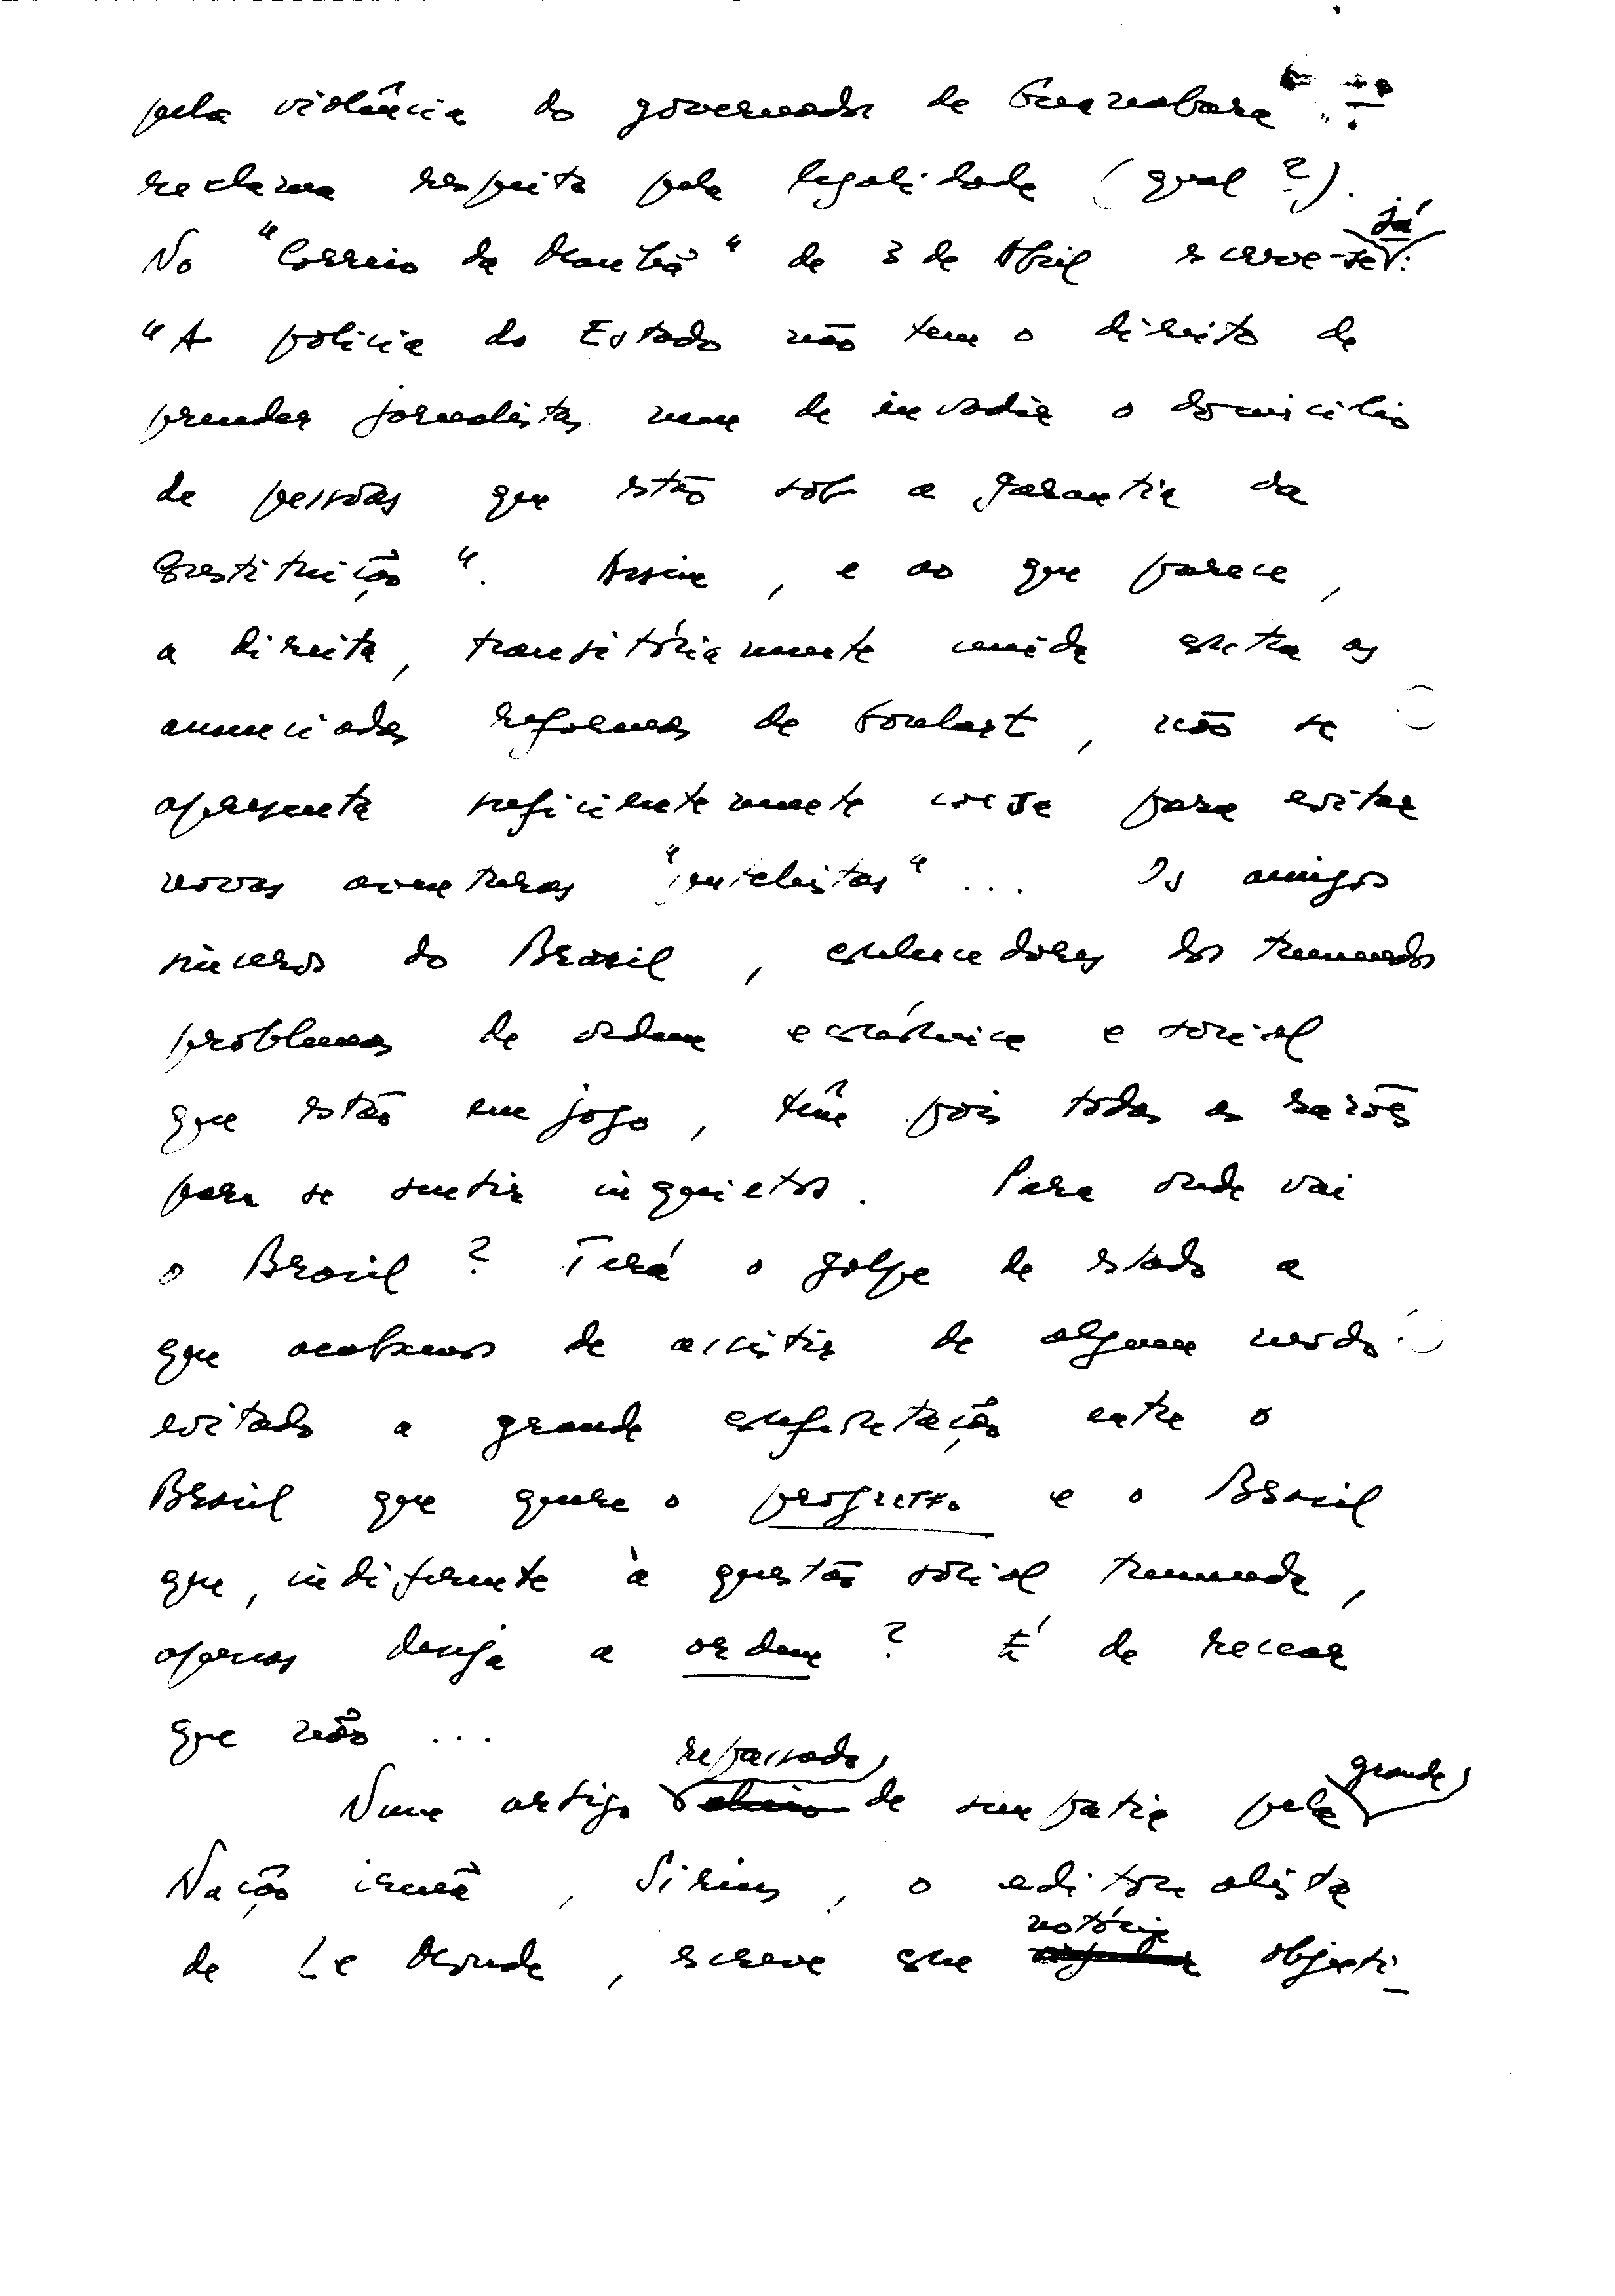 pela violência do governador de Guanabara
reclama respeito pela legalidade (qual?).
No "Correio da Manhã" de 3 de Abril escreve-se já:
"A polícia do Estado não tem o direito de
prender jornalistas nem de invadir o domicílio
de pessoas que estão sob a garantia da
Constituição". Assim, e ao que parece,
a direita, transitòriamente unida contra as
anunciadas reformas de Goulart, não se
apresenta suficientemente coesa para evitar
novas aventuras "putchistas"... Os amigos
sinceros do Brasil, conhecedores dos tremendos
problemas de ordem económica e social
que estão em jogo, têm pois todas as razões
para se sentir inquietos. Para onde vai
o Brasil? Terá o golpe de estado a
que acabamos de assistir de algum modo
evitado a grande confrontação entre o
Brasil que quere o progresso e o Brasil
que, indiferente à questão social tremenda,
apenas deseja a ordem? É de recear
que não...
Num artigo repassado de simpatia pela grande
Nação irmã, Sirius, o editorialista
de Le Monde, escreve com notória objecti-